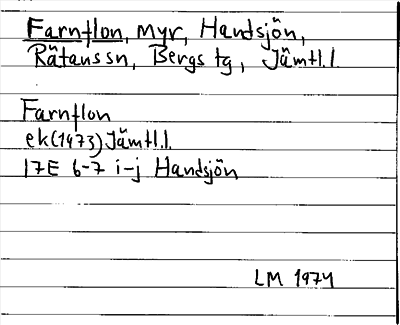 Farnflon, myr, Handsjön,
Rätans sn, Bergs tg, Jämtl.l.
Farnflon
ek(1973) Jämtl.l.
17E 6-7 i-j Handsjön
LM 1974